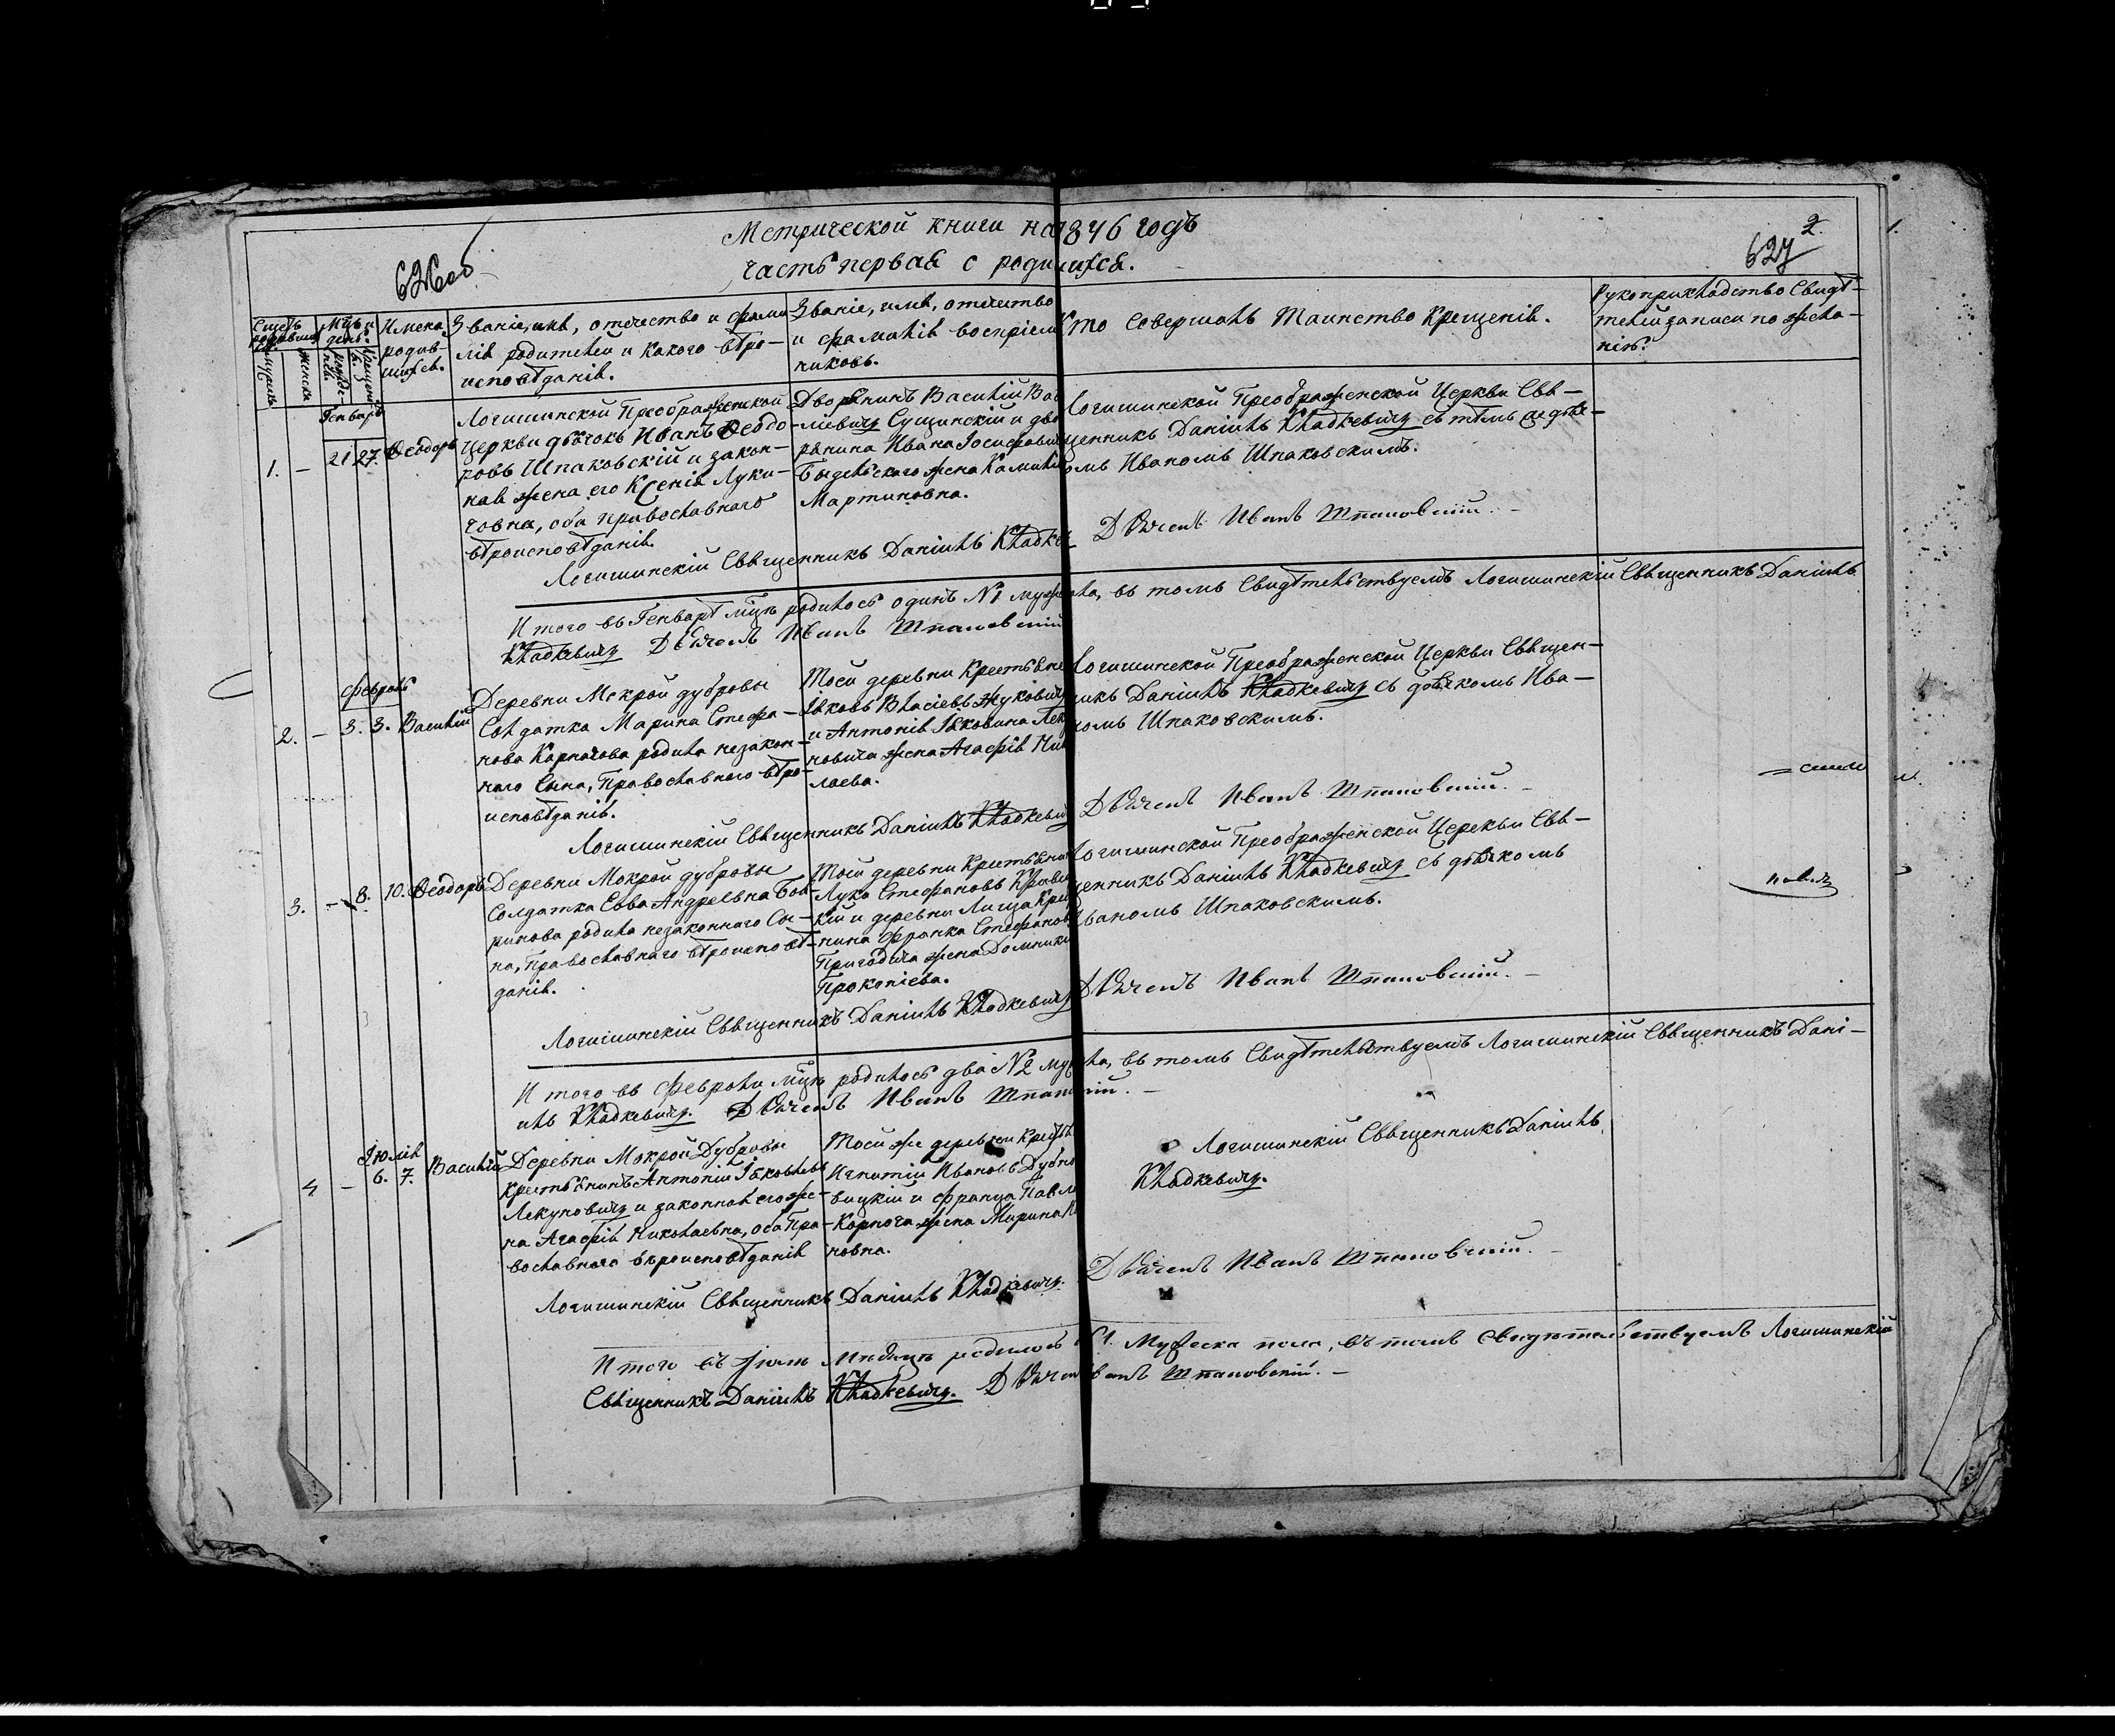 Метрической книги на 1846 годъ
часть первая о родившихся.
626 об
627
2.
Счетъ родившихся
Мужеска
Женска
Мѣц. и день
рожденія
крещенія
Имена
родив-
шихся.
Званіе, имя, отечество и фами
лія родителей и какого вѣро-
исповѣданія.
Званіе, имя, отечество
и фамилія воспріем
никовъ.
Кто совершалъ Таинство Крещенія.
Рукоприкладство Свидѣ-
телей записи по жела-
нію.
Генварь
1. — 21 27. Ѳеодоръ
Логишинской Преображенской
Церкви дьячокъ Иванъ Ѳеодо-
ровъ Шпаковскій и закон-
ная жена его Ксенія Луки-
човна, оба православнаго
вѣроисповѣданія.
Дворянинъ Василій Ва
ліевичъ Сущинскій и дво
рянина Ивана Іосифови
жена
Мартиновна.
Логишинской Преображенской Церкви Свя-
щенникъ Даніилъ Хлодкевичъ съ тѣмъ же дья-
комъ Иваномъ Шпаковскимъ.
Логишинскій Священникъ Даніилъ Хлодкев
Дьячекъ Иванъ Шпаковскій. —
Итого въ Генварѣ мѣцѣ родилось одинъ N1 мужеска, въ томъ Свидѣтельствуемъ Логишинскій Священникъ Даніилъ
Хлодкевичъ Дьячекъ Иванъ Шпаковскій
Февраль
2. — 3. 3. Василій
Деревни Мокрой дубровы
Солдатка Марина Стефа-
нова Карпачова родила незакон-
наго Сына, Православнаго вѣро
исповѣданія.
Той деревни Крестьяне
Яковъ Власіевъ Жуковичъ
и Антонія Яковина Лек
новича жена Агафія Ник
лаева.
Логишинской Преображенской Церкви Священ-
никъ Даніилъ Хлодкевичъ съ дьякомъ Ива-
номъ Шпаковскимъ.
Логишинскій Священникъ Даніилъ Хлодкевич
Дьячекъ Иванъ Шпаковскій. —
3. — 8. 10. Ѳеодоръ
Деревни Мокрой дубровы
Солдатка Евва Андреевна Боя-
ринова родила незаконнаго Сы-
на, Православнаго вѣроисповѣ-
данія.
Той деревни Крестьянин
Лука Стефановъ Кравец
кій и деревни Лыща Кре
нина Франка Стефанов
Пригодича жена Домники
Прокопіева.
Логишинской Преображенской Церкви Свя-
щенникъ Даніилъ Хлодкевичъ съ дьякомъ
Иваномъ Шпаковскимъ.
Логишинскій Священникъ Даніилъ Хлодкевичъ
Дьячекъ Иванъ Шпаковскій. —
Итого въ Февралѣ мѣцѣ родилось два N2 мужеска, въ томъ Свидѣтельствуемъ Логишинскій Священникъ Дані-
илъ Хлодкевичъ. Дьячекъ Иванъ Шпаковскій. —
Іюлія
4 — 6. 7. Василій
Деревни Мокрой Дубровы
Крестьянинъ Антоній Яковлевъ
Лекуновичъ и законная его же-
на Агафія Николаевна, оба Пра-
вославнаго вѣроисповѣданія
Той же деревни Крестьян
Игнатій Ивановъ Дубно
вицкій и Франца Павло
Карпоча жена Марина
новна.
Логишинскій Священникъ Даніилъ
Хлодкевичъ.
Логишинскій Священникъ Даніилъ Хлодкевичъ.
Дьячекъ Иванъ Шпаковскій. —
Итого въ Іюлѣ Мѣсяцѣ родилось N1. Мужеска пола, въ томъ свидѣтельствуемъ Логишинскій
Священникъ Даніилъ Хлодкевичъ. Дьячекъ Иванъ Шпаковскій. —